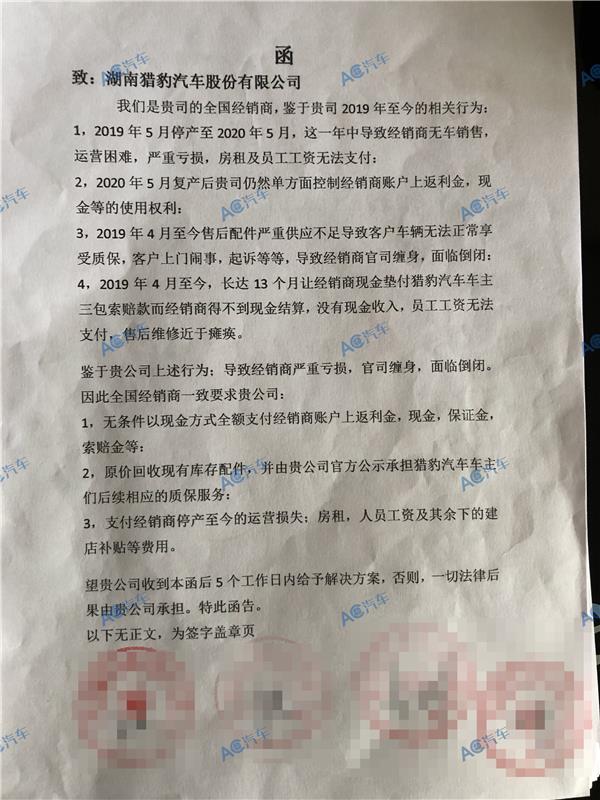 函
致：湖南猎豹汽车股份有限公司
我们是贵司的全国经销商，鉴于贵司 2019 年至今的相关行为：
1，2019 年 5 月停产至 2020 年 5 月，这一年中导致经销商无车销售，
运营困难，严重亏损，房租及员工工资无法支付：
2，2020 年 5 月复产后贵司仍然单方面控制经销商账户上返利金，现
金等的使用权利：
3，2019 年 4 月至今售后配件严重供应不足导致客户车辆无法正常享
受质保，客户上门闹事，起诉等等，导致经销商官司缠身，面临倒闭：
4，2019 年 4 月至今，长达 13 个月让经销商现金垫付猎豹汽车车主
三包索赔款而经销商得不到现金结算，没有现金收入，员工工资无法
支付，售后维修近于瘫痪。
鉴于贵公司上述行为；导致经销商严重亏损，官司缠身，面临倒闭。
因此全国经销商一致要求贵公司：
1，无条件以现金方式全额支付经销商账户上返利金，现金，保证金，
索赔金等：
2，原价回收现有库存配件，并由贵公司官方公示承担猎豹汽车车主
们后续相应的质保服务：
3，支付经销商停产至今的运营损失；房租，人员工资及其余下的建
店补贴等费用。
望贵公司收到本函后 5 个工作日内给予解决方案，否则，一切法律后
果由贵公司承担。特此函告。
以下无正文，为签字盖章页